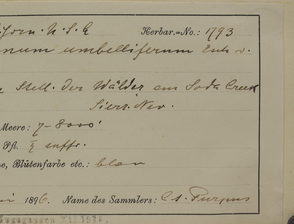 U.S.A Herbar.=No.: 1793
num umbelliferum
Stell. der Wälder am Soda Creek
Sierr. Nev.
Meere: 7-8000'
Pfl. suffr.
e, Blütenfarbe etc.: blau
1896. Name des Sammlers: C. A. Purpus